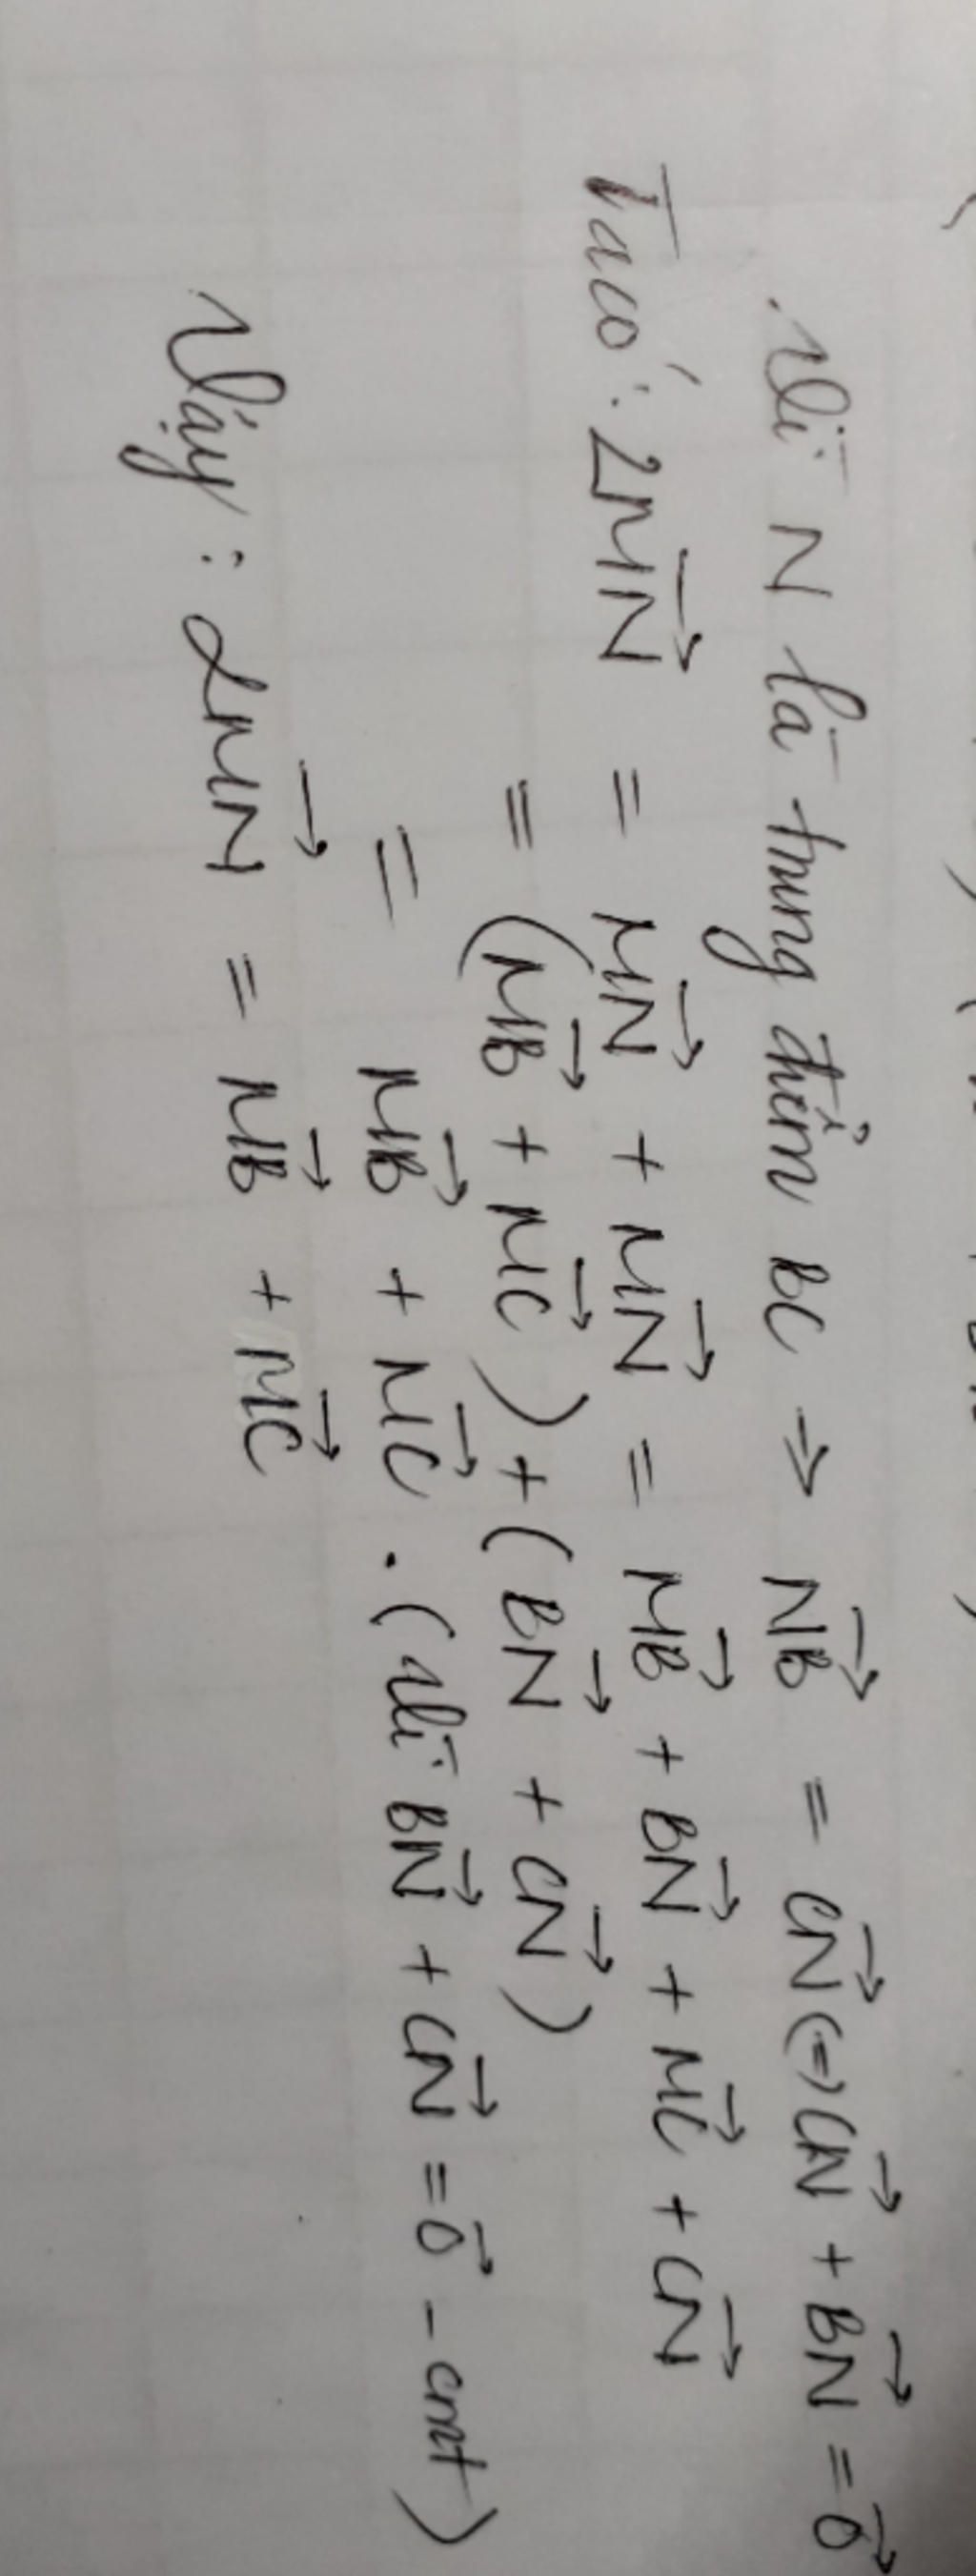 Vì N là trung điểm BC → \overrightarrow{NB} = \overrightarrow{CN} (=) \overrightarrow{CN} + \overrightarrow{BN} = \overrightarrow{0}
Ta có: 2\overrightarrow{MN} = \overrightarrow{MN} + \overrightarrow{MN} = \overrightarrow{MB} + \overrightarrow{BN} + \overrightarrow{MC} + \overrightarrow{CN}
= (\overrightarrow{MB} + \overrightarrow{MC}) + (\overrightarrow{BN} + \overrightarrow{CN})
= \overrightarrow{MB} + \overrightarrow{MC} . (vì \overrightarrow{BN} + \overrightarrow{CN} = \overrightarrow{0} - cmt)
Vậy: 2\overrightarrow{MN} = \overrightarrow{MB} + \overrightarrow{MC}